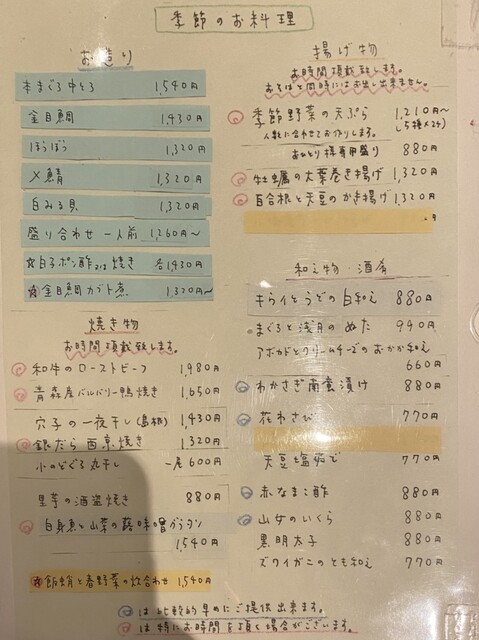 季節のお料理
お造り
本まぐろ中とろ 1,540円
金目鯛 1,430円
ほうぼう 1,320円
〆鯖 1,320円
白みる貝 1,320円
盛り合わせ 一人前 1,260円〜
☆白子ポン酢又は焼き 各1,430円
☆金目鯛カブト煮 1,320円〜
焼き物
お時間頂戴致します。
和牛のローストビーフ 1,980円
青森産バルバリー鴨焼き 1,650円
穴子の一夜干し(島根) 1,430円
銀だら西京焼き 1,320円
小のどぐろ丸干し 一尾600円
里芋の酒盗焼き 880円
白身魚と山菜の蕗味噌グラタン
1,540円
☆飯蛸と春野菜の炊合わせ 1,540円
揚げ物
お時間頂戴致します。
季節野菜の天ぷら 1,210円〜
人数に合わせてお作りします。
おひとり様専用盛り 880円
牡蠣の大葉巻き揚げ 1,320円
百合根と天豆のかき揚げ 1,320円
和え物 酒肴
きらイとうどの白和え 880円
まぐろと浅月のぬた 990円
アボカドとクリームチーズのおかか和え
660円
わかさぎ南蛮漬け 880円
花わさび 770円
天豆塩茹で 770円
赤なまこ酢 880円
山女のいくら 880円
黒明太子 880円
ズワイガニのとも和え 770円
は比較的早めにご提供出来ます。
は特にお時間を頂く場合がございます。